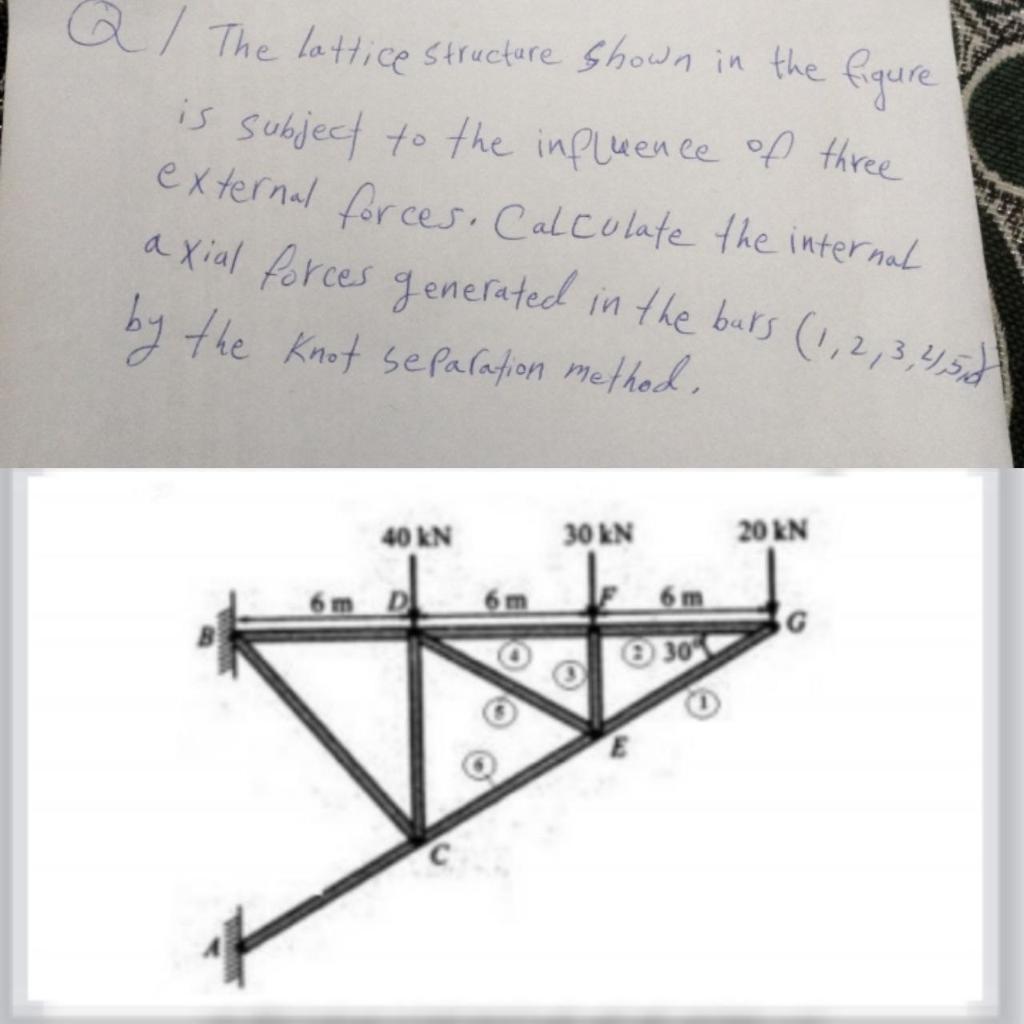 Q/ The lattice structure shown in the figure
is subject to the influence of three
external forces. Calculate the internal
axial forces generated in the bars (1,2,3,4,5,
by the Knot separation method.
40 kN 30 kN 20 kN
6 m D 6 m F 6 m
B G
4 3 2 30°
5 1
6 E
C
A